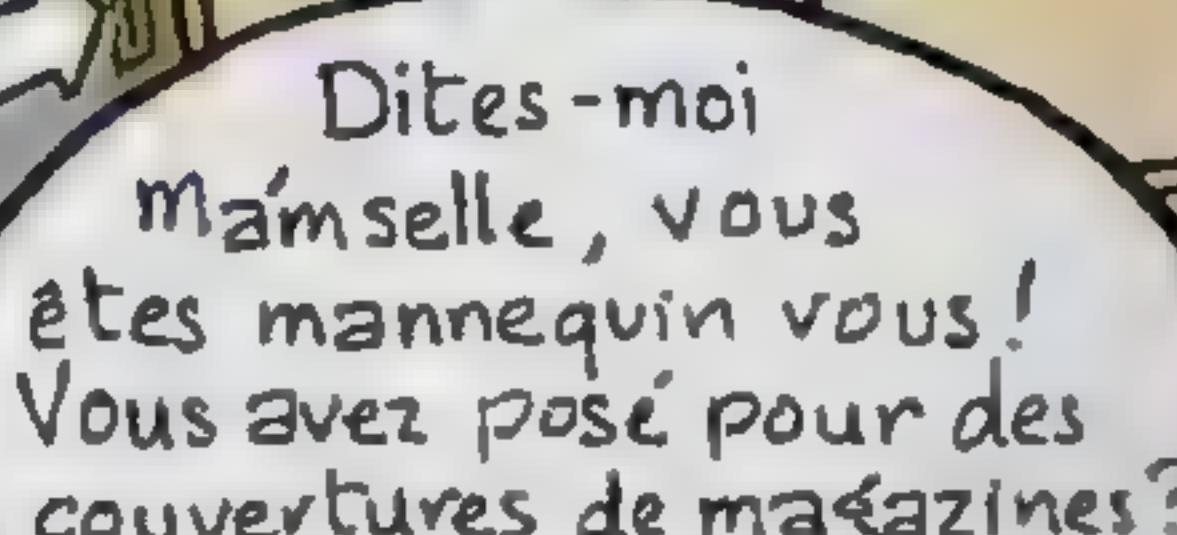 Dites-moi
Mam'selle, vous
êtes mannequin vous!
Vous avez posé pour des
couvertures de magazines?